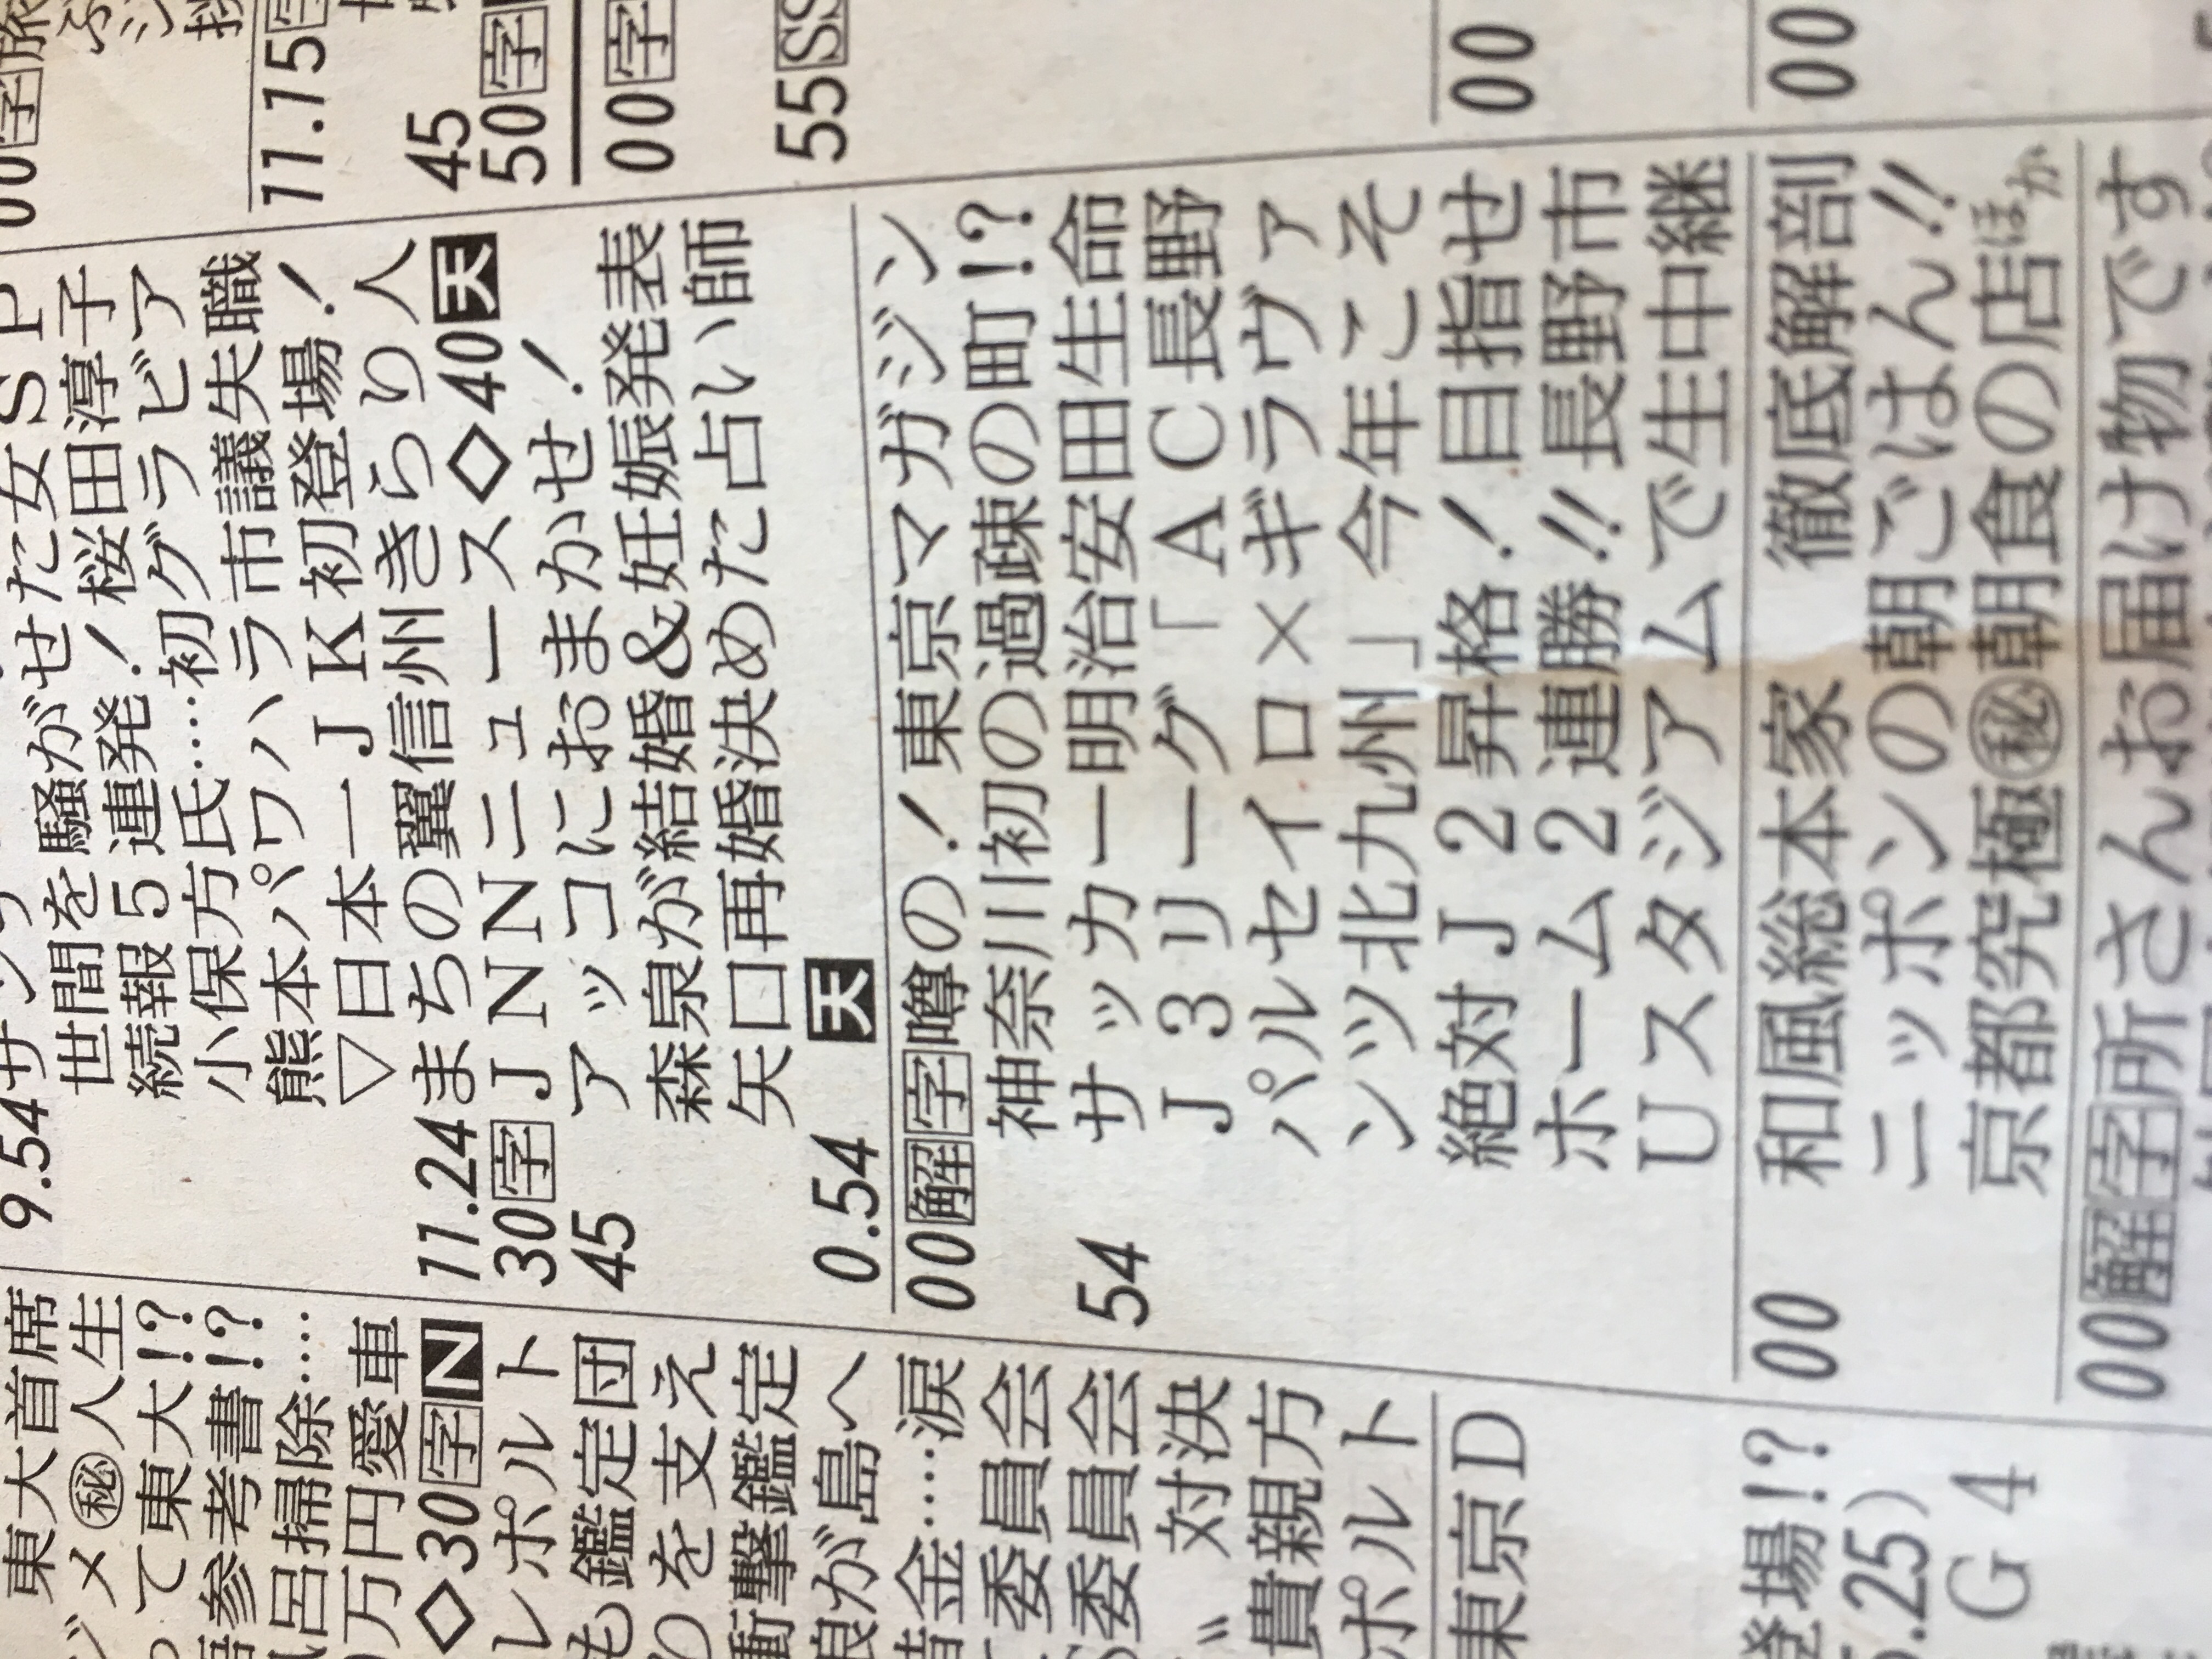 東大首席
ジメ㊙人生
って東大!?
語参考書!?
呂掃除……
万円愛車
◇30字N
レポルト
も鑑定団
を支え
衝撃鑑定
良が島へ
借金……涙
委員会
委員会
対決
貴親方
ポルト
東京D
登場!?
5.25)
G4
9.54サンデ
世間を騒がせた女SP
続報5連発!桜田淳子
小保方氏…初グラビア
熊本パワハラ市議失職
▽日本一JK初登場!
11.24まちの翼信州きらり人
30字JNNニュース◇40天
45 アッコにおまかせ!
森泉が結婚&妊娠発表
矢口再婚決めた占い師
0.54 天
00解字噂の!東京マガジン
神奈川初の過疎の町!?
54 サッカー明治安田生命
J3リーグ「AC長野
パルセイロ×ギラヴァ
ンツ北九州」今年こそ
絶対J2昇格!目指せ
ホーム2連勝!!長野市
Uスタジアムで生中継
00 和風総本家 徹底解剖
ニッポンの朝ごはん!!
京都究極㊙朝食の店ほか
00解字所さんお届け物です
00字旅
11.15字
45
50字
00字
55SS
00
00